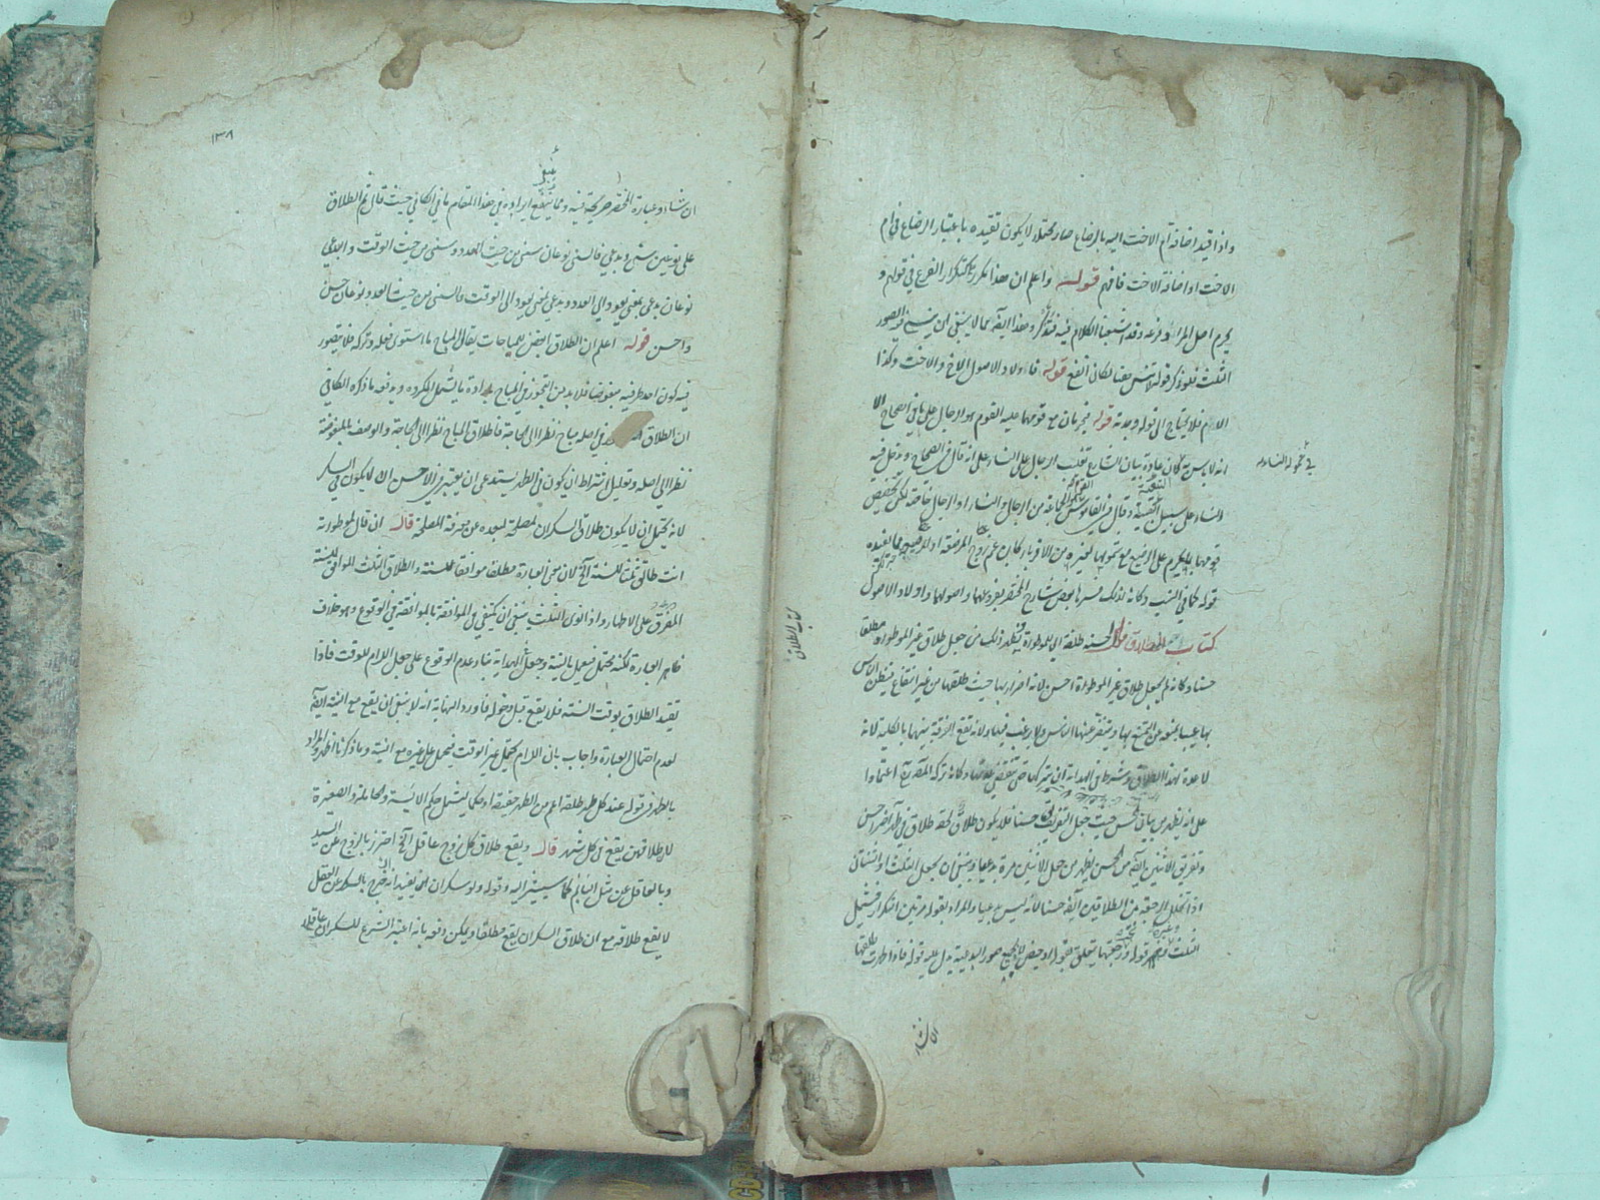 واذا قيد اضافة ام الاخت اليه بالرضاع صار محتملا لا يكون تقييده باعتبار الرضاع في ام
الاخت او اضافة الاخت فافهم قوله واعلم ان هذا تكرير كتكرار الفرع في قولهم و
يحرم اصل المراة وفرعه وقد اشبعنا الكلام فيه فتذكر وهذا ايضا مما لا ينبغي ان
الثلث فلو ذكر قوله هنا لكان انفع قوله فاولاد الاصول الاخ والاخت وكذا
الام فلا يحتاج الى قوله قوله فيحرمان مع قومهما عليه القوم هو الرجال على ما في الصحاح الا
انه لا بس به كان عادة بيان الشارع تغليب الرجال على النساء على انه قال في الصحاح ويدخل فيه
النساء على سبيل التبعية وقال في القاموس القوم الجماعة من الرجال والنساء او الرجال خاصة لكن تخصيص
قومهما على الرضيع مع شمولهما لغيره من الاقرباء كان عن زوج المرضعة او الرضيع مما يفيده
قوله كما في النسب وكانه لذلك فسرها بعض شارح المختصر بفروعهما واصولهما واولاد الاصول
كتاب الطلاق قال احسنه طلقة اي للموطوءة فذلك من جعل طلاق غير الموطوءة مطلقا
حسنا وكانه لم يجعل طلاق غير الموطوءة احسن لانه اضرار بها حيث طلقها من غير انتفاع فيظن الناس
بها عيبا يمنعه من التمتع بها ويتنفر عنها الناس ولا يرغب فيها ولانه تقع الفرقة بينهما بالكلية لانه
لا عدة لهذا الطلاق وشرط في الهداية ان يتركها حتى تنقضي عدتها وكانه تركه المصنف اعتمادا
على انه يظهر من بيان الحسن حيث جعل التفريق حسنا فلا يكون طلاق لحقه طلاق في طهر آخر احسن
وتفريق الاثنين ايضا من الحسن يظهر من جعل الاثنين مرة بدعيا وينبغي ان يجعل الثلث او اثنتان
اذا تخلل الرجعة بين الطلاقين ايضا حسنا لانه ليس بدعيا والمراد بقوله مرتين التكرار فيشمل
الثلث قوله رجعتها يتعلق بقوله او حيض لا بجميع صور البدعية يدل عليه قوله فاذا طهرت طلقها
ان شاء
في تمولد النساء
كتاب الطلاق
١٣٨
ان شاء وعبارة المختصر صريحة فيه ومما ينبغي ايراده في هذا المقام ما في الكافي حيث قال ثم الطلاق
على نوعين سني وبدعي فالسني نوعان سني من حيث العدد وسني من حيث الوقت والبدعي
نوعان بدعي لمعنى يعود الى العدد وبدعي لمعنى يعود الى الوقت والسني من حيث العدد نوعان حسن
واحسن قوله اعلم ان الطلاق ابغض المباحات يقال المباح ما استوى فعله وتركه فلا يتصور
فيه كون احد طرفيه مبغوضا فلا بد من التجوز في المباح بارادة ما يشمل المكروه ويدفعه ما ذكره الكافي
ان الطلاق في اصله مباح نظرا الى الحاجة فاطلاق المباح نظرا الى الحاجة والوصف بالمبغوضية
نظرا الى اصله وتعليل اشتراط ان يكون في الطهر يستدعي ان يعتبر في الاحسن ان لا يكون في السكر
لانه يحتمل ان لا يكون طلاق السكران لمصلحة لبعده عن معرفة المصلحة قال ان قال لموطوءته
انت طالق ثلثا للسنة الخ لان معنى العبارة مطلقا موافقا للسنة والطلاق الثلث الموافق للسنة
المفرق على الاطهار واذا نوى الثلث ينبغي ان يكتفي في الموافقة بالموافقة في الوقوع وهو خلاف
ظاهر العبارة لكنه محتمل فيعمل بالنية وجعل الهداية بناء عدم الوقوع على جعل اللام للوقت فاذا
تقيد الطلاق بوقت السنة فلا يقع قبل دخوله فاورد النهاية انه لا ينبغي ان يقع مع النية ايضا
لعدم احتمال العبارة واجاب بان اللام تحتمل غير الوقت فيحمل على غيره مع النية وما ذكرنا اظهر والمراد
بالطهر في قوله عند كل طهر طلقة اعم من الطهر حقيقة او حكما ليشمل حكم الائسة والحاملة والصغيرة
لان طلاقهن يقع في كل شهر قال ويقع طلاق كل زوج عاقل الخ احترز بالزوج عن السيد
وبالعاقل عن مثل النائم كما سيشير اليه وقوله ولو سكران انما يفيد انه خرج بالسكر عن العقل
لا يقع طلاقه مع ان طلاق السكران يقع مطلقا ويمكن دفعه بانه اعتبر الشرع للسكران عاقلا